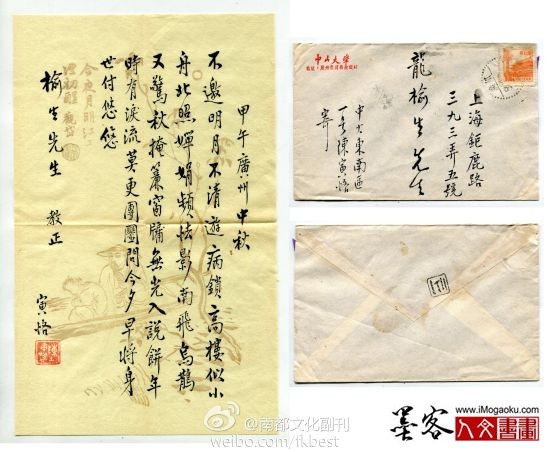 甲午廣州中秋
不邀明月不清遊病鎖高樓似小
舟北照嬋娟頻怯影南飛烏鵲
又驚秋掩簾窗牖無光入說餅年
時有淚流莫更團圞問今夕早將身
世付悠悠
榆生先生 教正
寅恪
今夜月明江上
酒初醒 觀岱
中山大學
上海鉅鹿路
三九三弄五號
龍榆生先生
中大東南區
一号陳寅恪
寄
@南都文化副刊
weibo.com/fkbest
墨客
www.iMogaoku.com
人文書畫